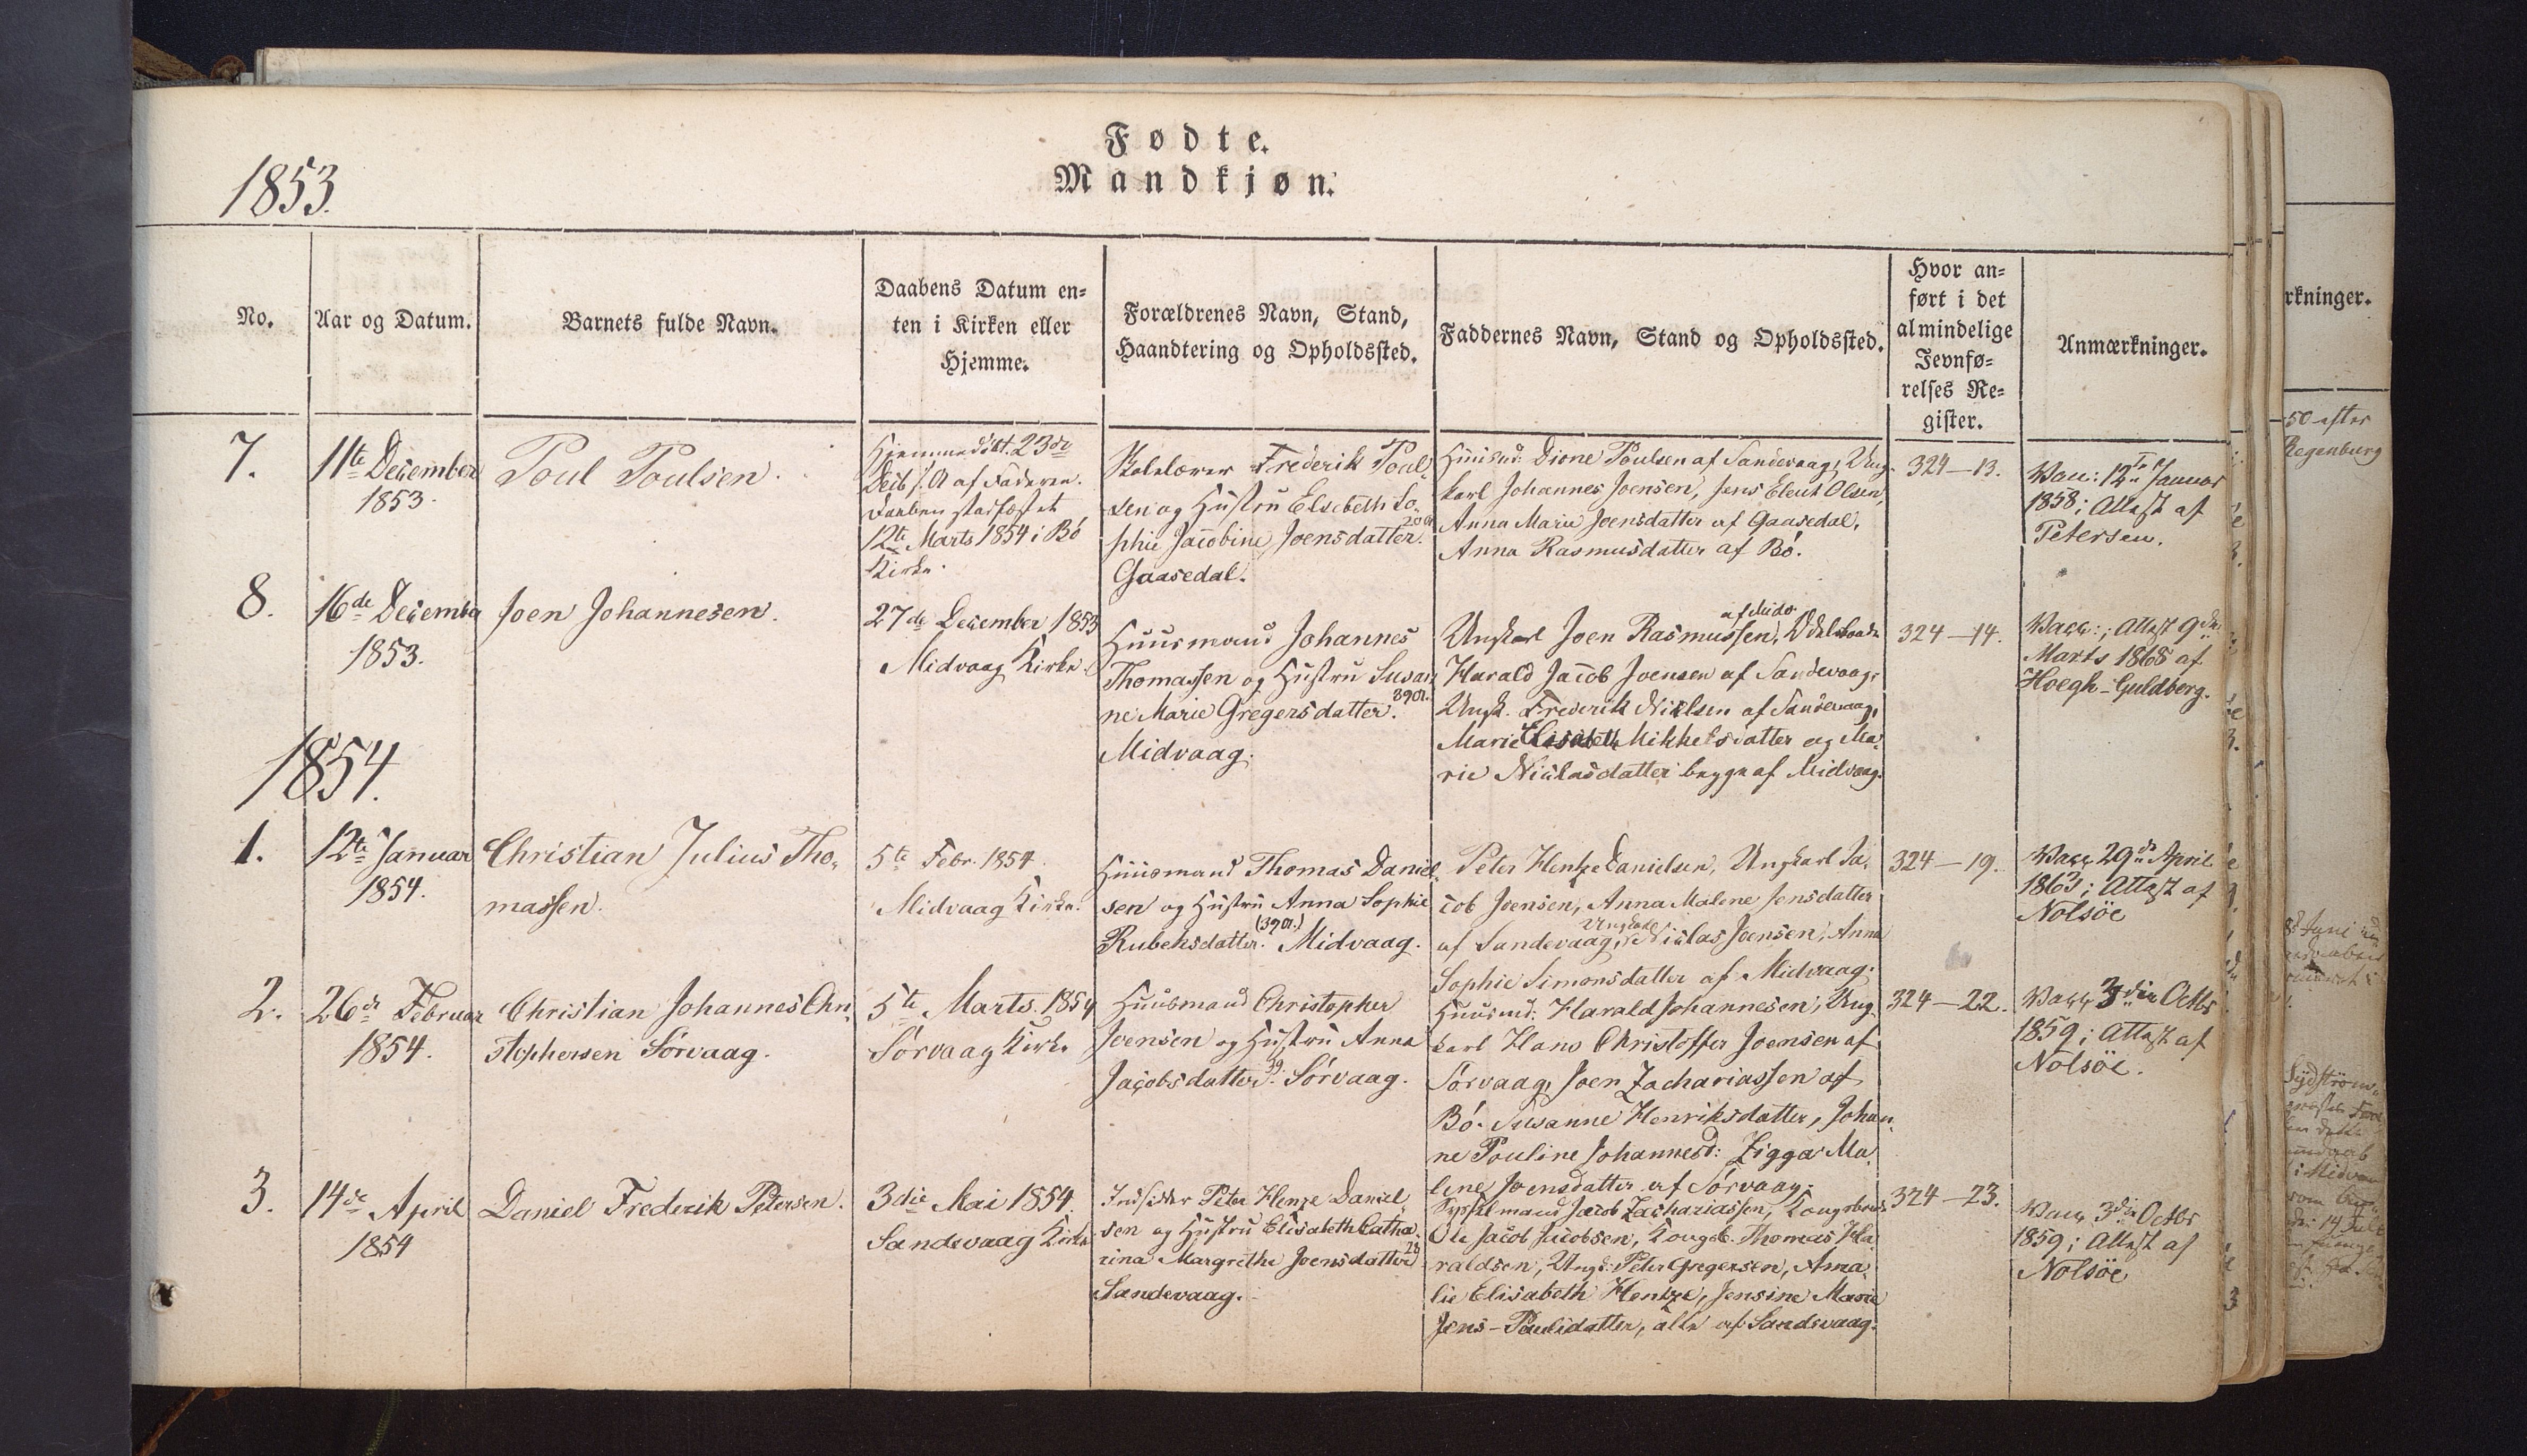 Fødte.
Mandkjøn.
1853.
No.
Aar og Datum.
Barnets fulde Navn.
Daabens Datum en-
ten i Kirken eller
Hjemme.
Forældrenes Navn, Stand,
Haandtering og Opholdssted.
Faddernes Navn, Stand og Opholdssted.
Hvor an-
ført i det
almindelige
Jevnfø-
relses Re-
gister.
Anmærkninger.
7.
11te December
1853.
Poul Poulsen.
Hjemmedöbt. 23de
Decb. s. A af Faderen.
Daaben stadfæstet
12te Marts 1854 i Bó
Kirke.
Skolelærer Frederik Poul-
sen og Hustru Elsebeth So-
phie Jacobine Joensdatter.
Gaasedal.
Huusmd: Dione Poulsen af Sandevaag, Ung-
karl Johannes Joensen, Jens Elent Olsen,
Anna Marie Joensdatter af Gaasedal,
Anna Rasmusdatter af Bó.
324-13.
Vacc: 12te Januar
1858; Attest af
Petersen.
8.
16de December
1853.
Joen Johannesen.
27de December 1853
Midvaag Kirke
Huusmand Johannes
Thomassen og Hustru Susan-
ne Marie Gregersdatter. 39 A.
Midvaag.
Ungkarl Joen Rasmussen,
Harald Jacob Joensen af Sandevaag,
Ungk. Frederik Nielsen af Sandevaag,
Marie Elisabeth Mikkelsdatter og Ma-
rie Niclasdatter begge af Midvaag.
324-14.
Vacc:; Attest 9de
Marts 1868 af
Hoegh-Guldberg.
1854.
1.
12te Januar
1854.
Christian Julius Tho-
massen.
5te Febr. 1854.
Midvaag Kirke.
Huusmand Thomas Daniel-
sen og Hustru Anna Sophie
Rubeksdatter. (39 A.) Midvaag.
Peter Hentze Danielsen, Ungkarl Ja-
cob Joensen, Anna Malene Jensdatter
af Sandevaag, Ungkarl Niclas Joensen, Anna
Sophie Simonsdatter af Midvaag.
324-19.
Vacc 29de April
1863; Attest af
Nolsöe
2.
26de Februar
1854.
Christian Johannes Chri-
stophersen Sörvaag.
5te Marts. 1854
Sörvaag Kirke
Huusmand Christopher
Joensen og Hustru Anna
Jacobsdatter 39. Sörvaag.
Huusmd: Harald Johannesen, Ung-
karl Hans Christoffer Joensen af
Sörvaag, Joen Zachariassen af
Bó. Susanne Henriksdatter, Johan-
ne Pouline Johannesd: Zigga Ma-
lene Joensdatter af Sörvaag.
324-22.
Vacc 3die Octbr
1859; Attest af
Nolsöe.
3.
14de April
1854
Daniel Frederik Petersen.
3die Mai 1854.
Sandevaag Kirke
Indsidder Peter Henze Daniel-
sen og Hustru Elisabeth Catha-
rina Margrethe Joensdatter 28
Sandevaag.
Sysselmand Jacob Zachariassen, Kongsbonde
Ole Jacob Jacobsen, Kongsb. Thomas Ha-
raldsen, Ungk: Peter Gregersen, Ama-
lie Elisabeth Hentze, Jensine Marie
Jens-Poulsdatter, alle af Sandevaag.
324-23.
Vacc 3die Octbr
1859; Attest af
Nolsöe
rkninger.
50 efter
Regenburg